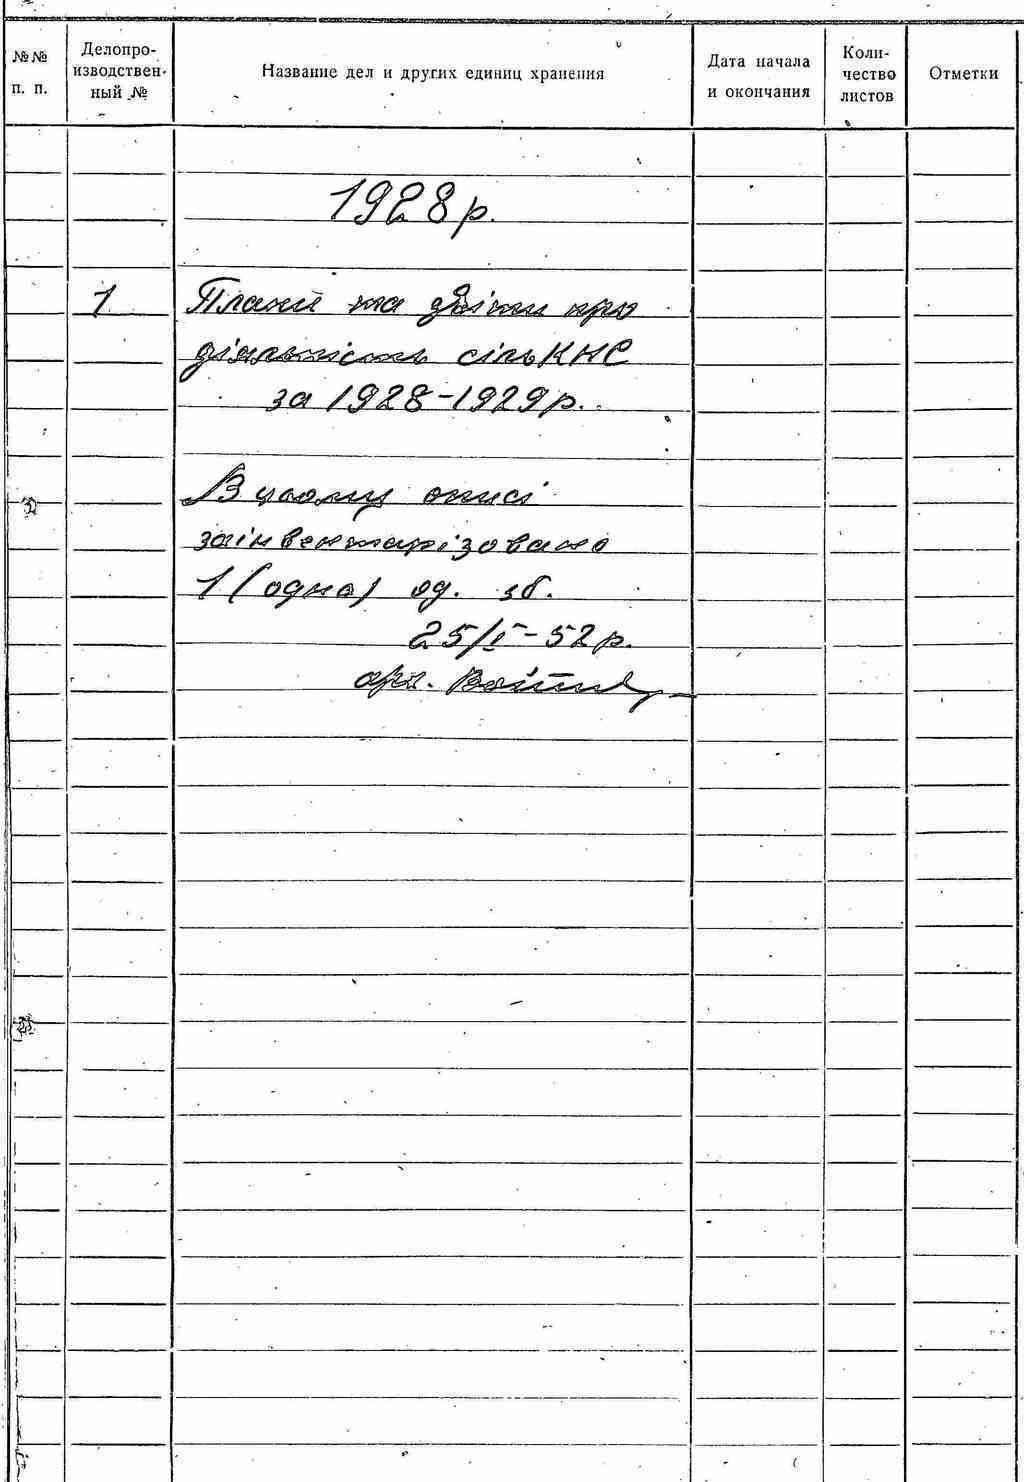 №№ п. п.
Делопро-
изводствен-
ный №
Название дел и других единиц хранения
Дата начала
и окончания
Коли-
чество
листов
Отметки
1928 р.
1 Плани та звіти про
діяльність сільКНС
за 1928-1929 р.
В цьому описі
заінвентарізовано
1 (одна) од. зб.
25/I-52 р.
арх.